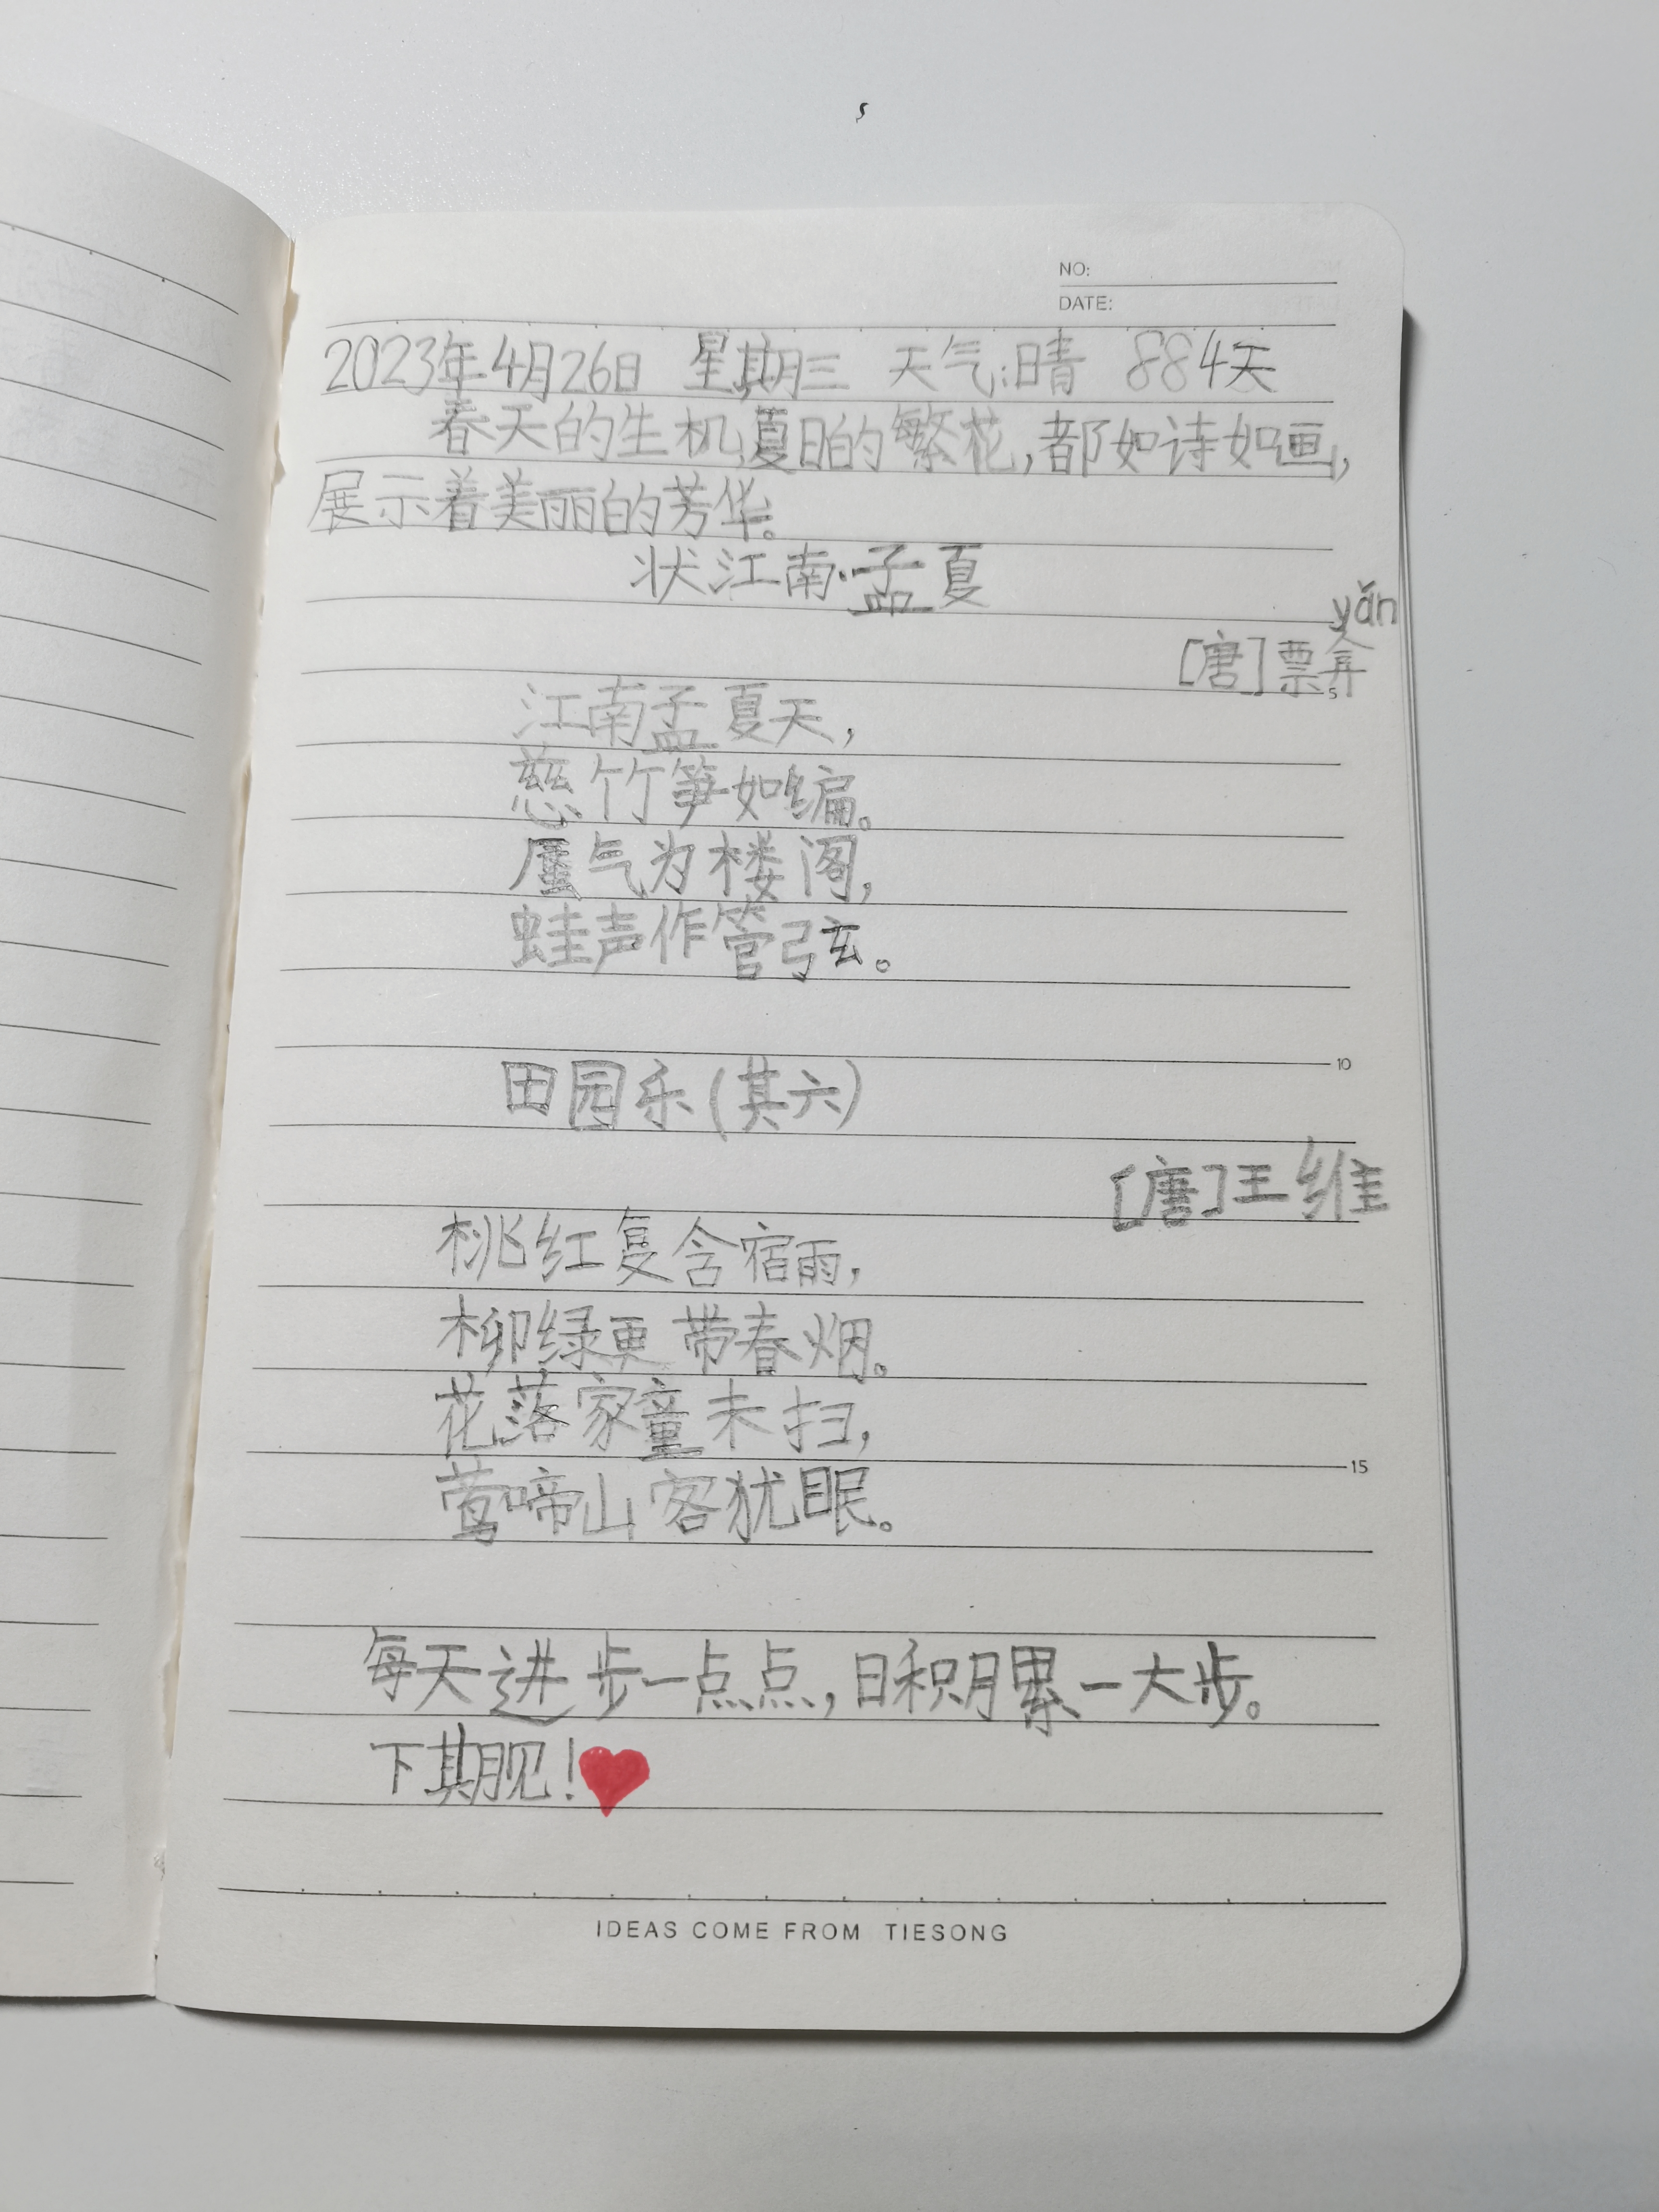 NO:
DATE:
2023年4月26日 星期三 天气:晴 884天
春天的生机,夏日的繁花,都如诗如画,
展示着美丽的芳华。
状江南·孟夏
yǎn
[唐]票弇
5
江南孟夏天,
慈竹笋如编。
蜃气为楼阁,
蛙声作管弦。
田园乐(其六)
10
[唐]王维
桃红复含宿雨,
柳绿更带春烟。
花落家童未扫,
莺啼山客犹眠。
15
每天进步一点点,日积月累一大步。
下期见!
IDEAS COME FROM TIESONG